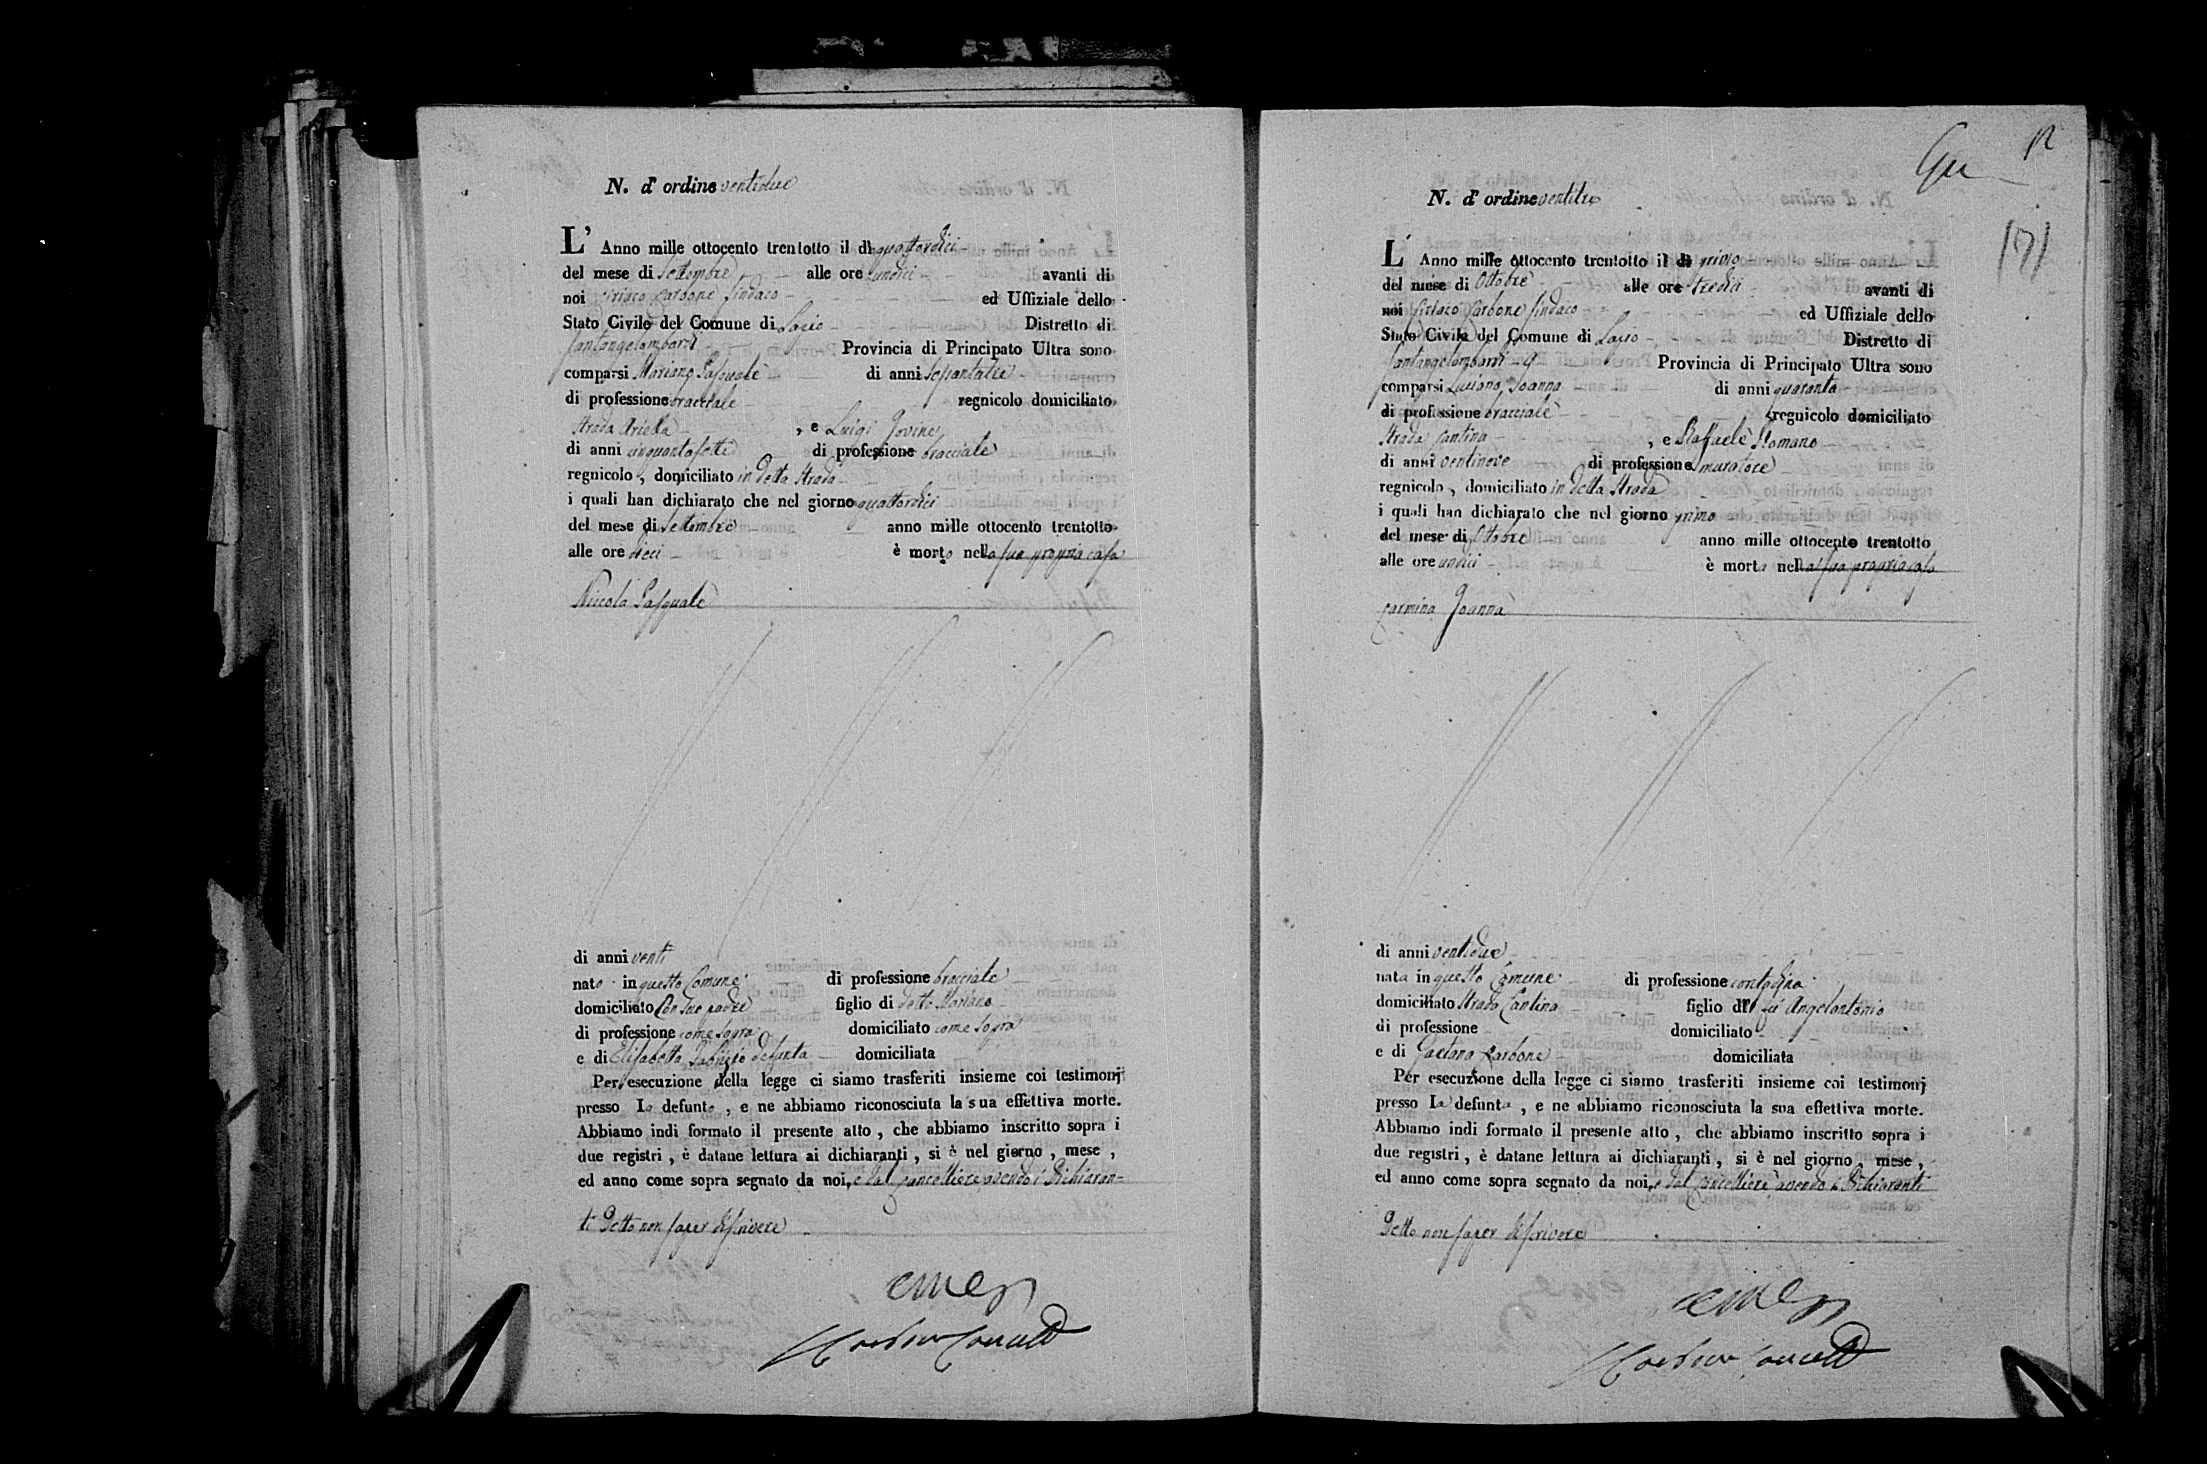 N. d' ordine ventidue
L' Anno mille ottocento trentotto il dì quattordici
del mese di Settembre alle ore undici avanti di
noi Ciriaco Carbone Sindaco ed Uffiziale dello
Stato Civile del Comune di Lacio Distretto di
Santangelombardi Provincia di Principato Ultra sono
comparsi Mariano Pasquale di anni sessantatre
di professione bracciale regnicolo domiciliato
Strada Ariella , e Luigi Jovine
di anni cinquantasette di professione bracciale
regnicolo , domiciliato in detta Strada
i quali han dichiarato che nel giorno quattordici
del mese di Settembre anno mille ottocento trentotto
alle ore dieci è morto nella sua propria casa
Niccola Pasquale
di anni venti
nato in questo Comune di professione bracciale
domiciliato Con suo padre figlio di detto Mariano
di professione come sopra domiciliato come sopra
e di Elisabetta defunta domiciliata
Per esecuzione della legge ci siamo trasferiti insieme coi testimonj
presso Lo defunto , e ne abbiamo riconosciuta la sua effettiva morte.
Abbiamo indi formato il presente atto , che abbiamo inscritto sopra i
due registri , è datane lettura ai dichiaranti , si è nel giorno , mese ,
ed anno come sopra segnato da noi, e dal Cancelliere avendo i Dichiaran=
ti Detto non saper di scrivere
N. d' ordine ventitre
L' Anno mille ottocento trentotto il dì primo
del mese di Ottobre alle ore tredici avanti di
noi Ciriaco Carbone Sindaco ed Uffiziale dello
Stato Civile del Comune di Lacio Distretto di
Santangelombardi Provincia di Principato Ultra sono
comparsi Luciano Joanna di anni quaranta
di professione bracciale regnicolo domiciliato
Strada Cantina , e Raffaele Romano
di anni ventinove di professione muratore
regnicolo , domiciliato in detta Strada
i quali han dichiarato che nel giorno primo
del mese di Ottobre anno mille ottocento trentotto
alle ore undici è morta nella sua propria casa
Carmina Joanna
di anni ventidue
nata in questo Comune di professione contadina
domiciliato Strada Cantina figlio del fu Angelantonio
di professione domiciliato
e di Gaetana Carbone domiciliata
Per esecuzione della legge ci siamo trasferiti insieme coi testimonj
presso La defunta , e ne abbiamo riconosciuta la sua effettiva morte.
Abbiamo indi formato il presente atto , che abbiamo inscritto sopra i
due registri , è datane lettura ai dichiaranti , si è nel giorno , mese ,
ed anno come sopra segnato da noi, e dal Cancelliere avendo i Dichiaranti
Detto non saper di scrivere